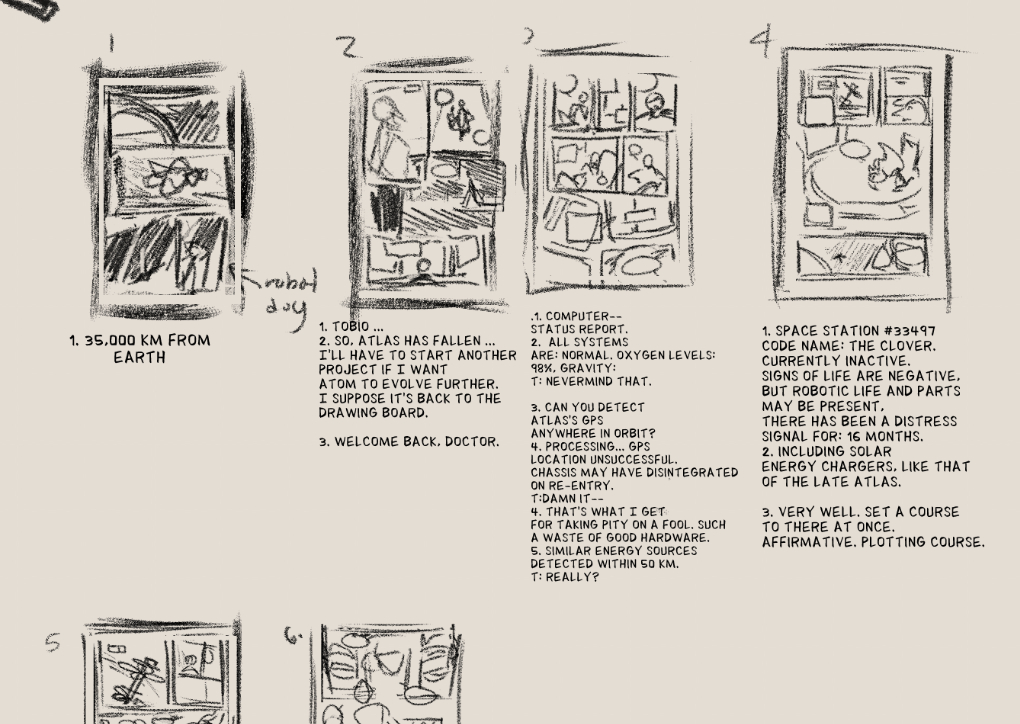 1
2
3
4
robot
dog
1. 35,000 KM FROM
EARTH
1. TOBIO ...
2. SO, ATLAS HAS FALLEN ...
I'LL HAVE TO START ANOTHER
PROJECT IF I WANT
ATOM TO EVOLVE FURTHER.
I SUPPOSE IT'S BACK TO THE
DRAWING BOARD.
3. WELCOME BACK, DOCTOR.
.1. COMPUTER--
STATUS REPORT.
2. ALL SYSTEMS
ARE: NORMAL. OXYGEN LEVELS:
98%, GRAVITY:
T: NEVERMIND THAT.
3. CAN YOU DETECT
ATLAS'S GPS
ANYWHERE IN ORBIT?
4. PROCESSING... GPS
LOCATION UNSUCCESSFUL.
CHASSIS MAY HAVE DISINTEGRATED
ON RE-ENTRY.
T:DAMN IT--
4. THAT'S WHAT I GET
FOR TAKING PITY ON A FOOL. SUCH
A WASTE OF GOOD HARDWARE.
5. SIMILAR ENERGY SOURCES
DETECTED WITHIN 50 KM.
T: REALLY?
1. SPACE STATION #33497
CODE NAME: THE CLOVER.
CURRENTLY INACTIVE.
SIGNS OF LIFE ARE NEGATIVE,
BUT ROBOTIC LIFE AND PARTS
MAY BE PRESENT.
THERE HAS BEEN A DISTRESS
SIGNAL FOR: 16 MONTHS.
2. INCLUDING SOLAR
ENERGY CHARGERS, LIKE THAT
OF THE LATE ATLAS.
3. VERY WELL. SET A COURSE
TO THERE AT ONCE.
AFFIRMATIVE. PLOTTING COURSE.
5
6.